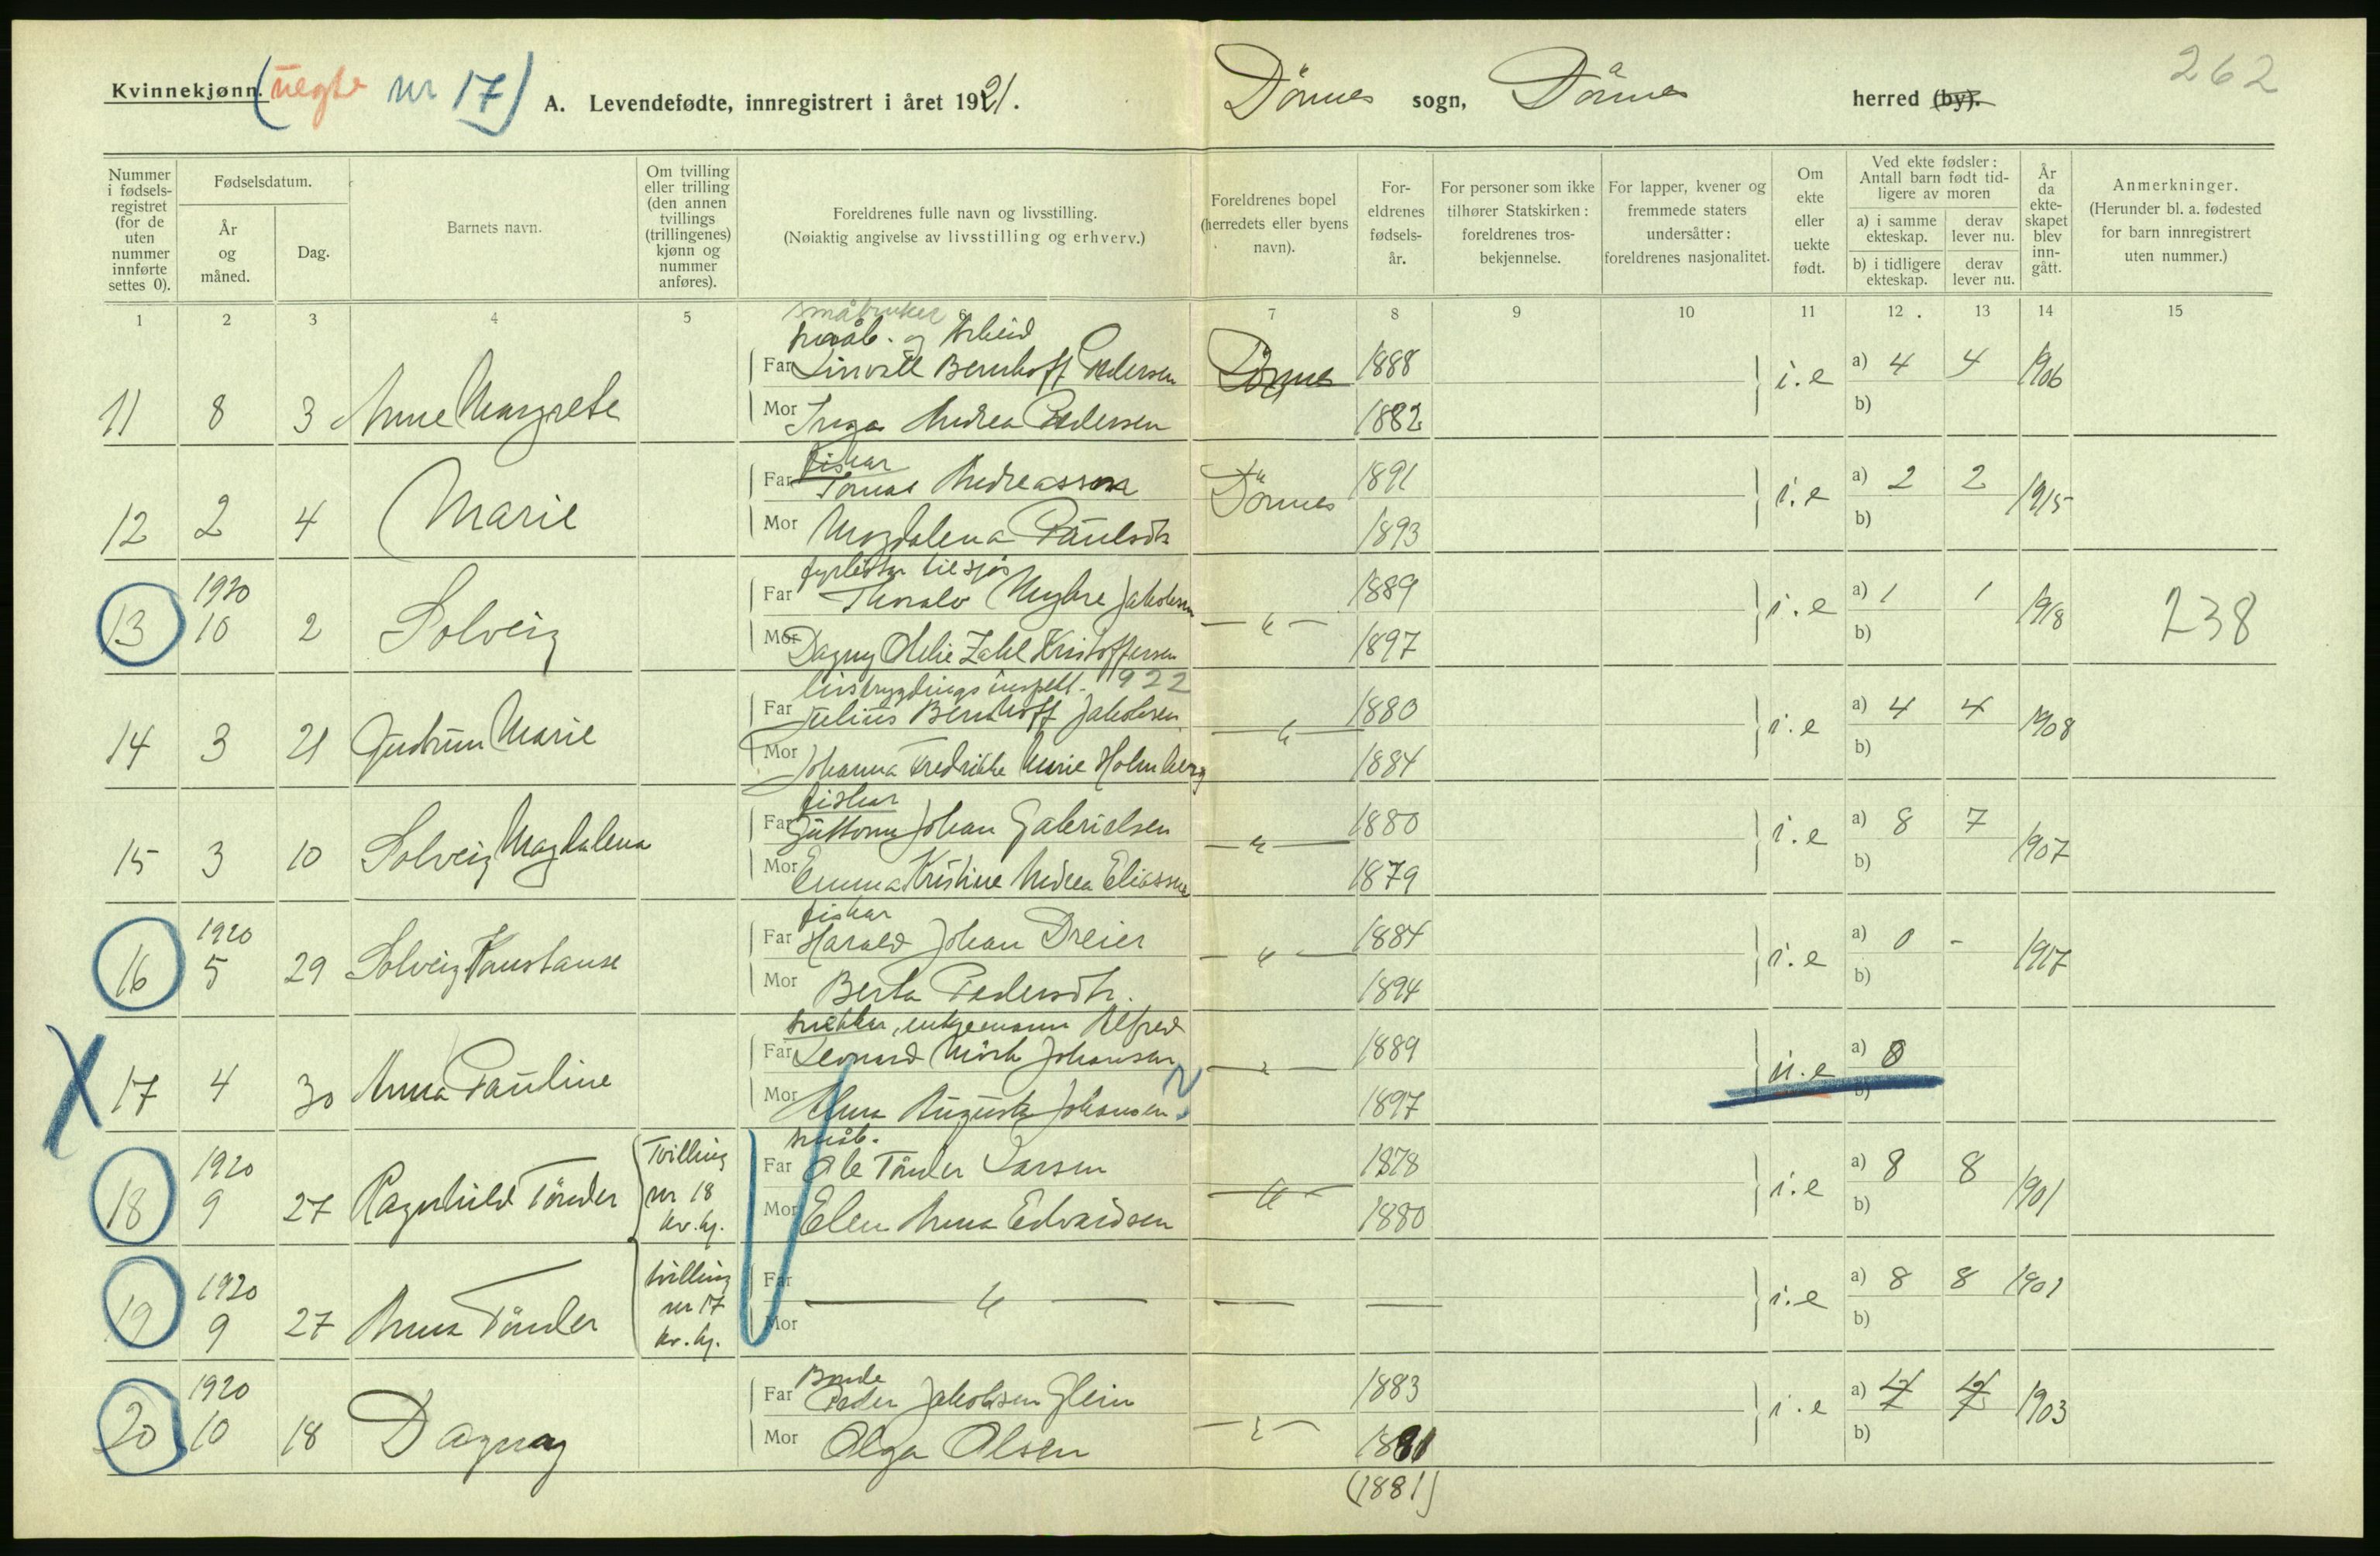 Kvinnekjønn. (uegte nr 17) A. Levendefødte, innregistrert i året 1921. Dönnes sogn, Dönnes herred (by). 262
Nummer i fødsels-registret (for de uten nummer innførte settes 0).
Fødselsdatum.
År og måned.
Dag.
Barnets navn.
Om tvilling eller trilling (den annen tvillings (trillingenes) kjønn og nummer anføres).
Foreldrenes fulle navn og livsstilling.
(Nøiaktig angivelse av livsstilling og erhverv.)
Foreldrenes bopel (herredets eller byens navn).
For-eldrenes fødsels-år.
For personer som ikke tilhører Statskirken: foreldrenes tros-bekjennelse.
For lapper, kvener og fremmede staters undersåtter: foreldrenes nasjonalitet.
Om ekte eller uekte født.
Ved ekte fødsler: Antall barn født tid-ligere av moren
a) i samme ekteskap. derav lever nu.
b) i tidligere ekteskap. derav lever nu.
År da ekte-skapet blev inn-gått.
Anmerkninger.
(Herunder bl. a. fødested for barn innregistrert uten nummer.)
1 2 3 4 5 6 7 8 9 10 11 12 13 14 15
småbruker
småb. og Arbeid
Far Linvald Bernhoff Pedersen Dönnes 1888
11 8 3 Anne Margrete i.e a) 4 4 1906
Mor Inga Andrea Pedersen 1882 b)
fiskar
Far Tomas Andreassen Dönnes 1891
12 2 4 Marie i.e a) 2 2 1915
Mor Magdalena Paulsdtr 1893 b)
fyrbötar til sjøs
Far Thoralv Myhre Jakobsen 1889
13 1920 10 2 Solveig — " — i.e a) 1 1 1918 238
Mor Dagny Othelie Zahl Kristoffersen 1897 b)
livstrygdings inspekt. 922
Far Julius Bernhoff Jakobsen 1880
14 3 21 Gudrun Marie — " — i.e a) 4 4 1908
Mor Johanna Fredrikke Marie Holmberg 1884 b)
fiskar
Far Guttorm Johan Gabrielsen 1880
15 3 10 Solveig Magdalena — " — i.e a) 8 7 1907
Mor Emma Kristine Andrea Eliassen 1879 b)
fiskar
Far Harald Johan Dreier 1884
16 1920 5 29 Solveig Konstanse — " — i.e a) 0 - 1917
Mor Berta Pedersdtr. 1894 b)
snekker, enkjemann Alfred
Far Leonard Mörk Johansen 1889
X 17 4 30 Anna Pauline — " — u.e a) 0
Mor Anna Augusta Johansen ? 1897 b)
småb.
Far Ole Tönder Larsen 1878
18 1920 9 27 Ragnhild Tönder Tvilling nr 18 kv.kj. — " — i.e a) 8 8 1901
Mor Elen Anna Edvardsen 1880 b)
19 1920 9 27 Anna Tönder tvilling nr 17 kv.kj. Far Mor — " — — — i.e a) 8 8 1901 b)
Bonde
Far Peder Jakobsen Glein 1883
20 1920 10 18 Dagny — " — i.e a) 7 7 1903
Mor Olga Olsen 1881 b)
(1881)